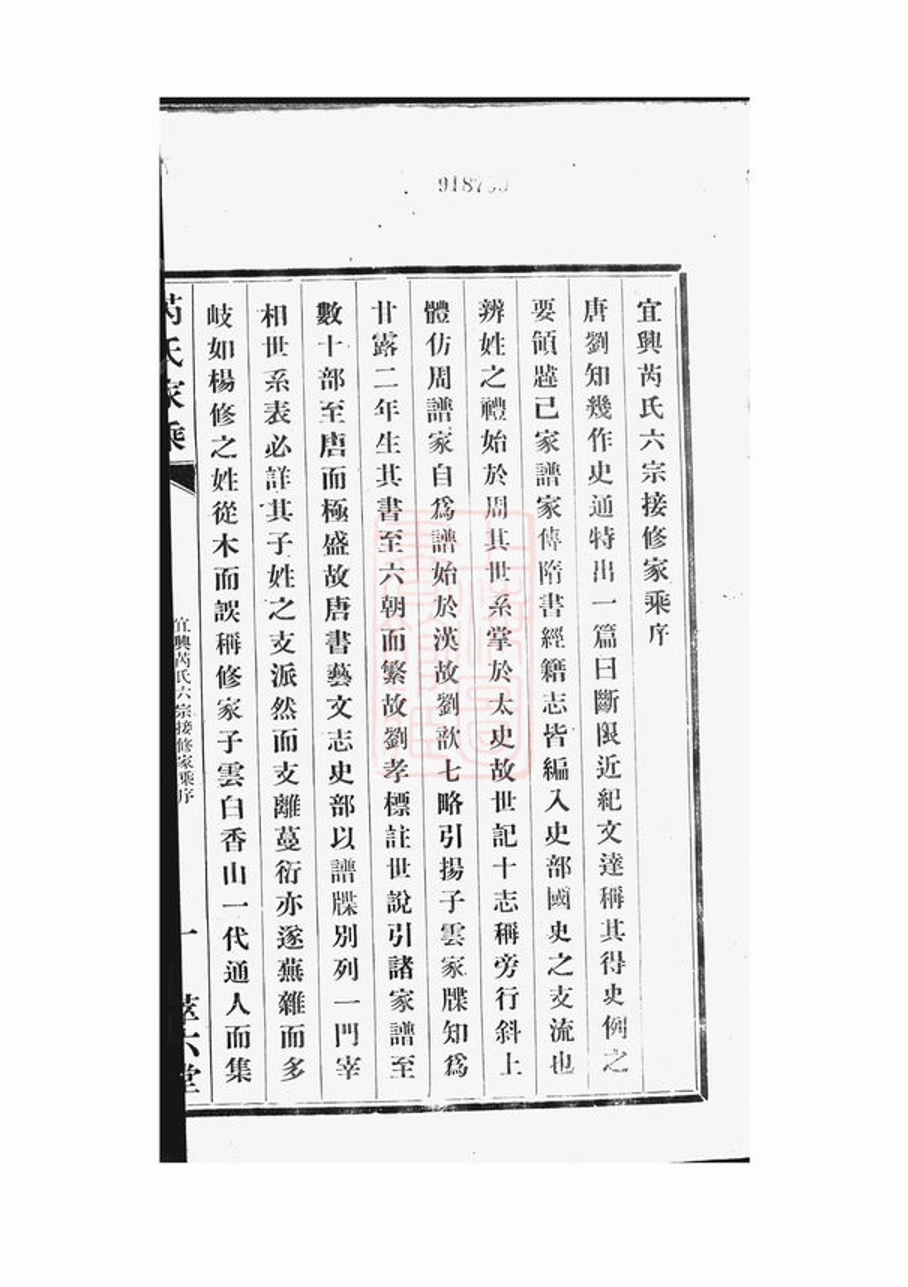 宜興芮氏六宗接修家乘序
唐劉知幾作史通特出一篇曰斷限近紀文達稱其得史例之
要領韙已家譜家傳隋書經籍志皆編入史部國史之支流也
辨姓之禮始於周其世系掌於太史故世記十志稱旁行斜上
體仿周譜家自爲譜始於漢故劉歆七略引揚子雲家牒知爲
甘露二年生其書至六朝而繁故劉孝標註世說引諸家譜至
數十部至唐而極盛故唐書藝文志史部以譜牒別列一門宰
相世系表必詳其子姓之支派然而支離蔓衍亦遂蕪雜而多
岐如楊修之姓從木而誤稱修家子雲白香山一代通人而集
芮氏家乘
宜興芮氏六宗接修家乘序
一
六堂
9187